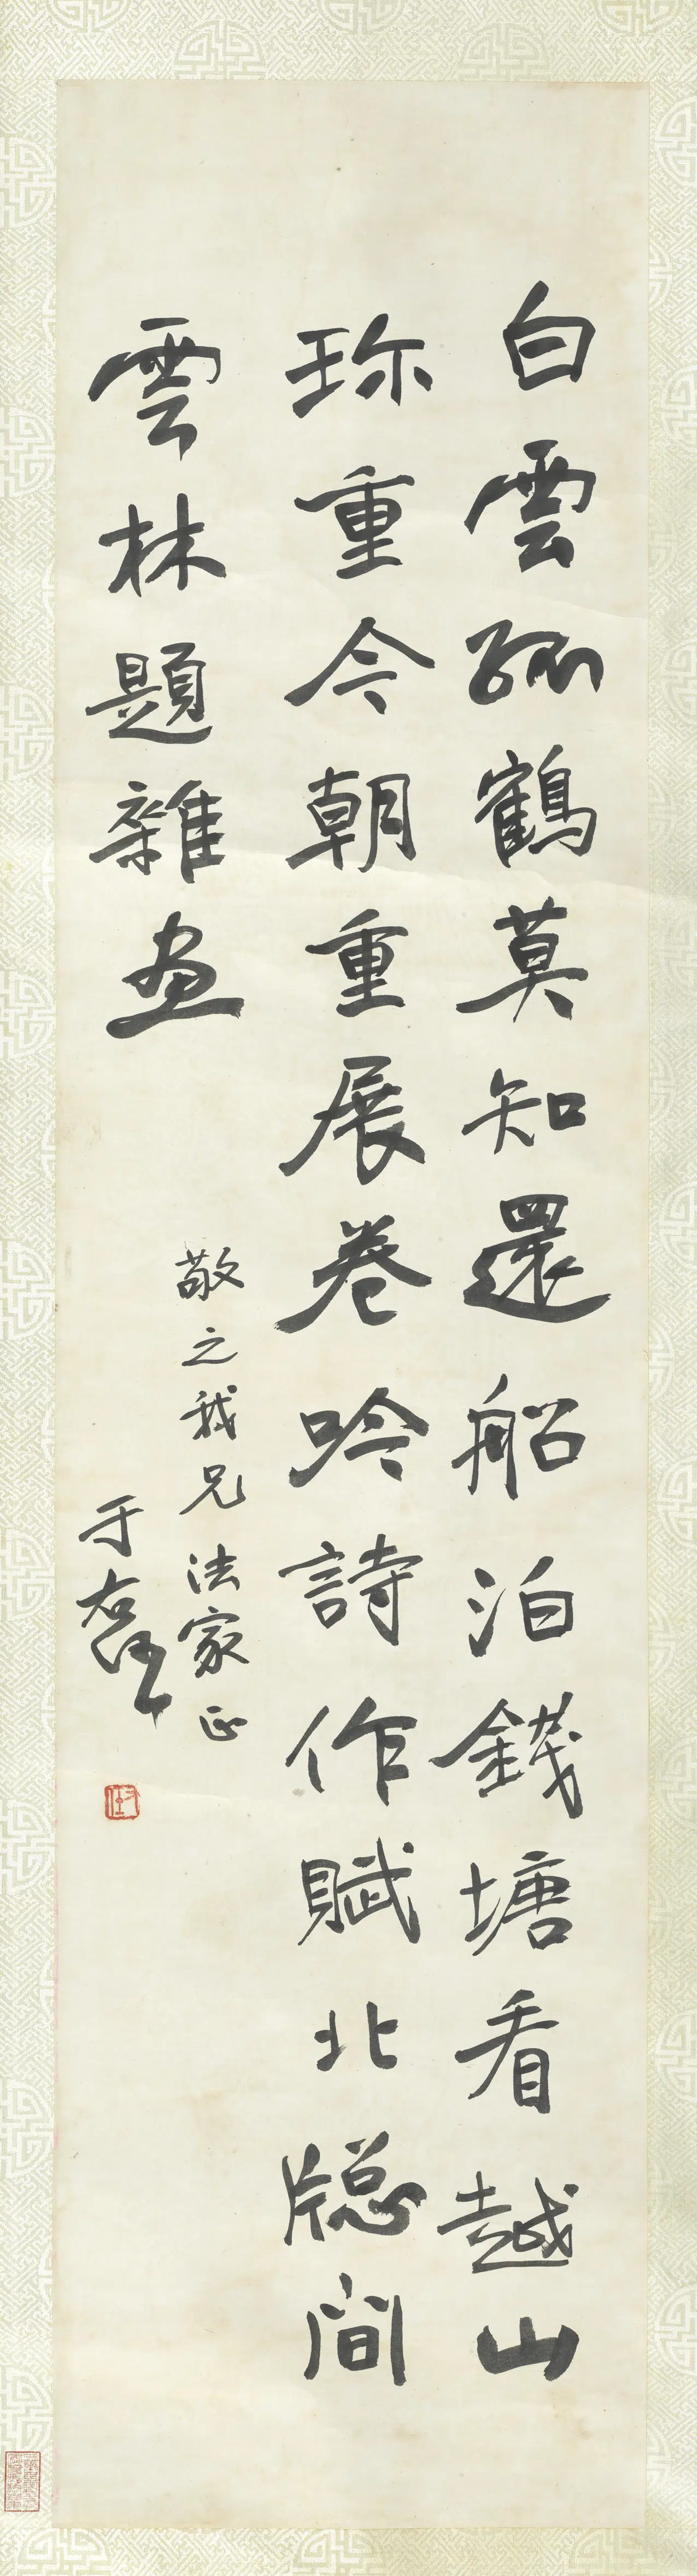 白雲孤鶴莫知還船泊錢塘看越山
珎重今朝重展卷吟詩作賦北牎間
雲林題雜画
敬之我兄法家正
于右任
右任